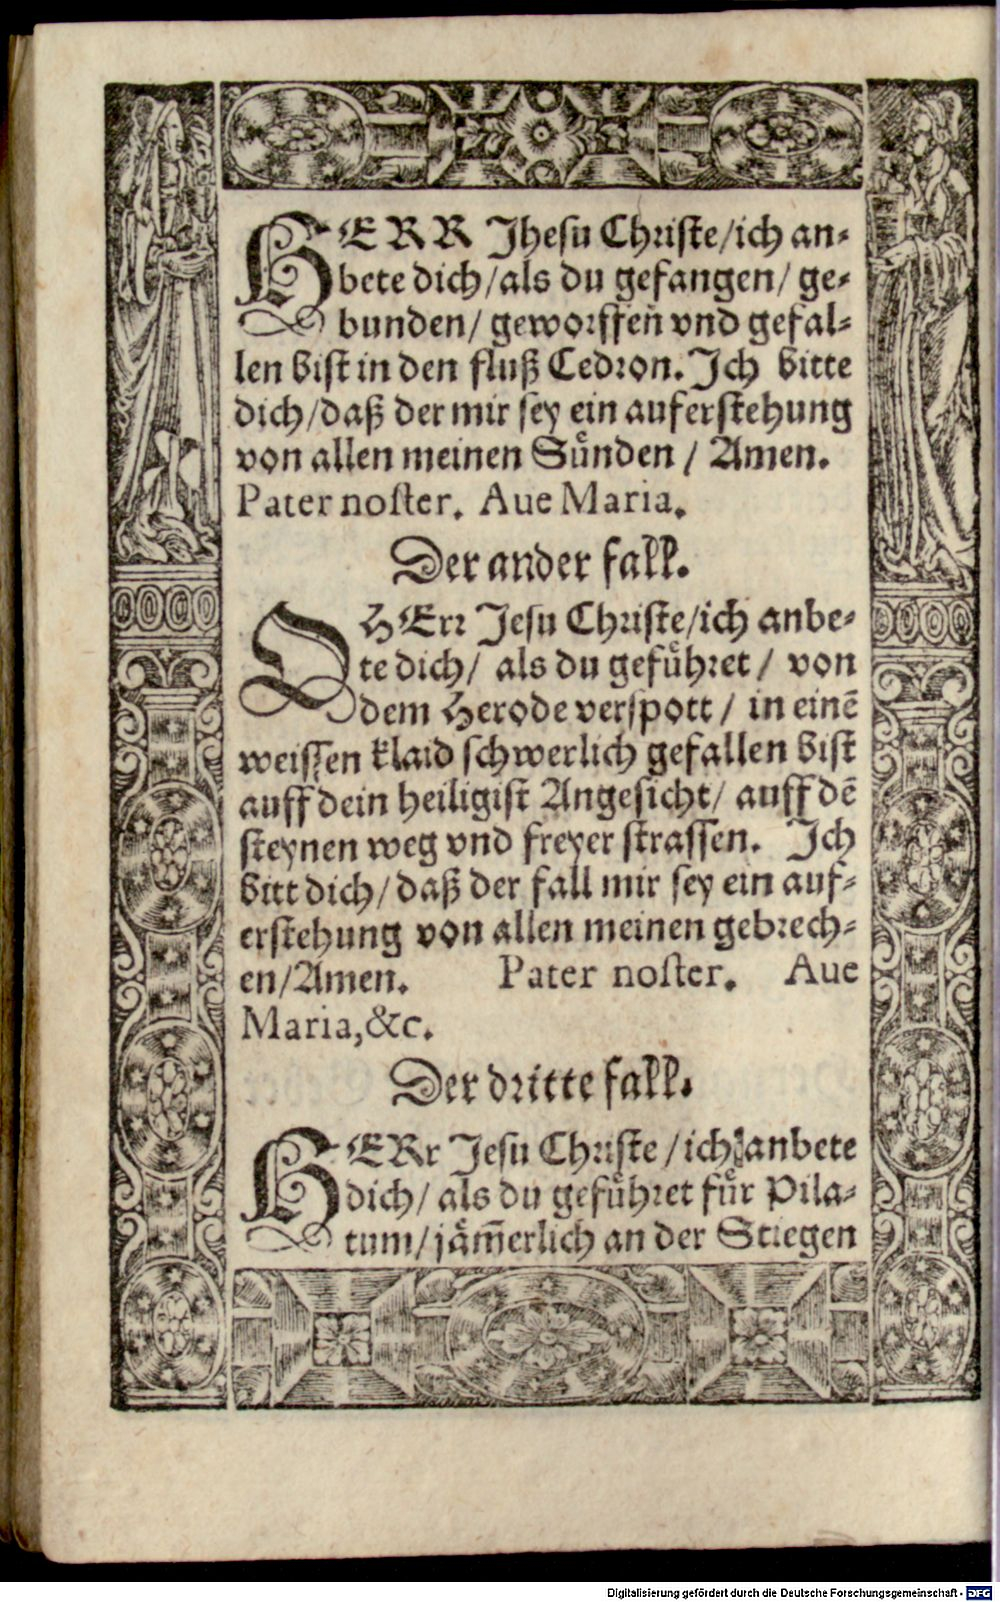 HERR Jhesu Christe/ich an-
bete dich/als du gefangen/ ge-
bunden/ geworffeñ vnd gefal-
len bist in den fluß Cedron. Ich bitte
dich/daß der mir sey ein auferstehung
von allen meinen Suͤnden / Amen.
Pater noster. Aue Maria.
Der ander fall.
O HErr Jesu Christe/ich anbe-
te dich/ als du gefuͤhret / von
dem Herode verspott / in einē
weissen klaid schwerlich gefallen bist
auff dein heiligist Angesicht/ auff dē
steynen weg vnd freyer strassen. Ich
bitt dich/daß der fall mir sey ein auf-
erstehung von allen meinen gebrech-
en/Amen. Pater noster. Aue
Maria,&c.
Der dritte fall.
HERr Jesu Christe /ich anbete
dich/ als du gefuͤhret fuͤr Pila-
tum/jaͤm̄erlich an der Stiegen
Digitalisierung gefördert durch die Deutsche Forschungsgemeinschaft - DFG